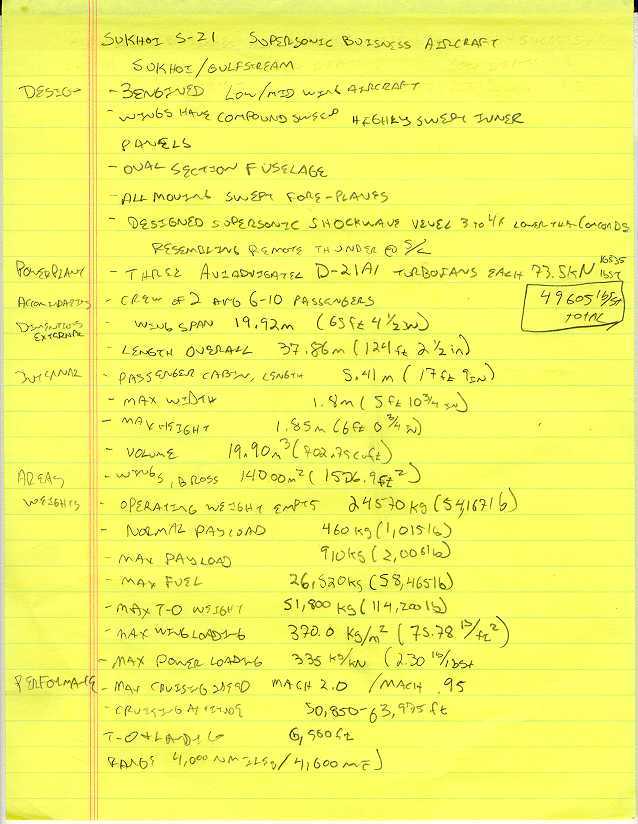 SUKHOI S-21 SUPERSONIC BUISNESS AIRCRAFT
SUKHOI/GULFSTREAM
DESIGN - 3 ENGINED LOW/MID WING AIRCRAFT
- WINGS HAVE COMPOUND SWEEP HIGHLY SWEPT INNER
PANELS
- OVAL SECTION FUSELAGE
- ALL MOVING SWEPT FORE-PLANES
- DESIGNED SUPERSONIC SHOCKWAVE LEVEL 3 to 4% LOWER THAN CONCORDS
RESEMBLING REMOTE THUNDER @ S/L
POWERPLANT - THREE AVIADVIGATEL D-21A1 TURBOFANS EACH 73.5KN 16535 lbst
ACCOMMODATIONS - CREW OF 2 AND 6-10 PASSENGERS
49605 lbst
TOTAL
DIMENTIONS EXTERNAL - WING SPAN 19.92m (65 ft 4 1/2 IN)
- LENGTH OVERALL 37.86m (124 ft 2 1/2 in)
INTERNAL - PASSENGER CABIN, LENGTH 5.41m (17 ft 9 IN)
- MAX WIDTH 1.8m (5 ft 10 3/4 IN)
- MAX HEIGHT 1.85m (6 ft 0 3/4 IN)
- VOLUME 19.90m³ (702.75 cuft)
AREAS - WINGS, GROSS 14000m² (1506.9 ft²)
WEIGHTS - OPERATING WEIGHT EMPTY 24570 kg (54167 lb)
- NORMAL PAYLOAD 460 kg (1,015 lb)
- MAX PAYLOAD 910 kg (2,006 lb)
- MAX FUEL 26,520 kg (58,465 lb)
- MAX T-O WEIGHT 51,800 kg (114,200 lb)
- MAX WING LOADING 370.0 kg/m² (75.78 lb/ft²)
- MAX POWER LOADING 335 kg/kN (2.30 lb/lbst
PERFORMANCE - MAX CRUISING SPEED MACH 2.0 / MACH .95
- CRUISING ALTITUDE 50,850-63,975 ft
T-O + LANDING 6,500 ft
RANGE 4,000 N MILES / 4,600 MI